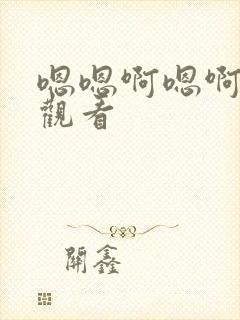 嗯嗯啊嗯啊
觀看
開鑫